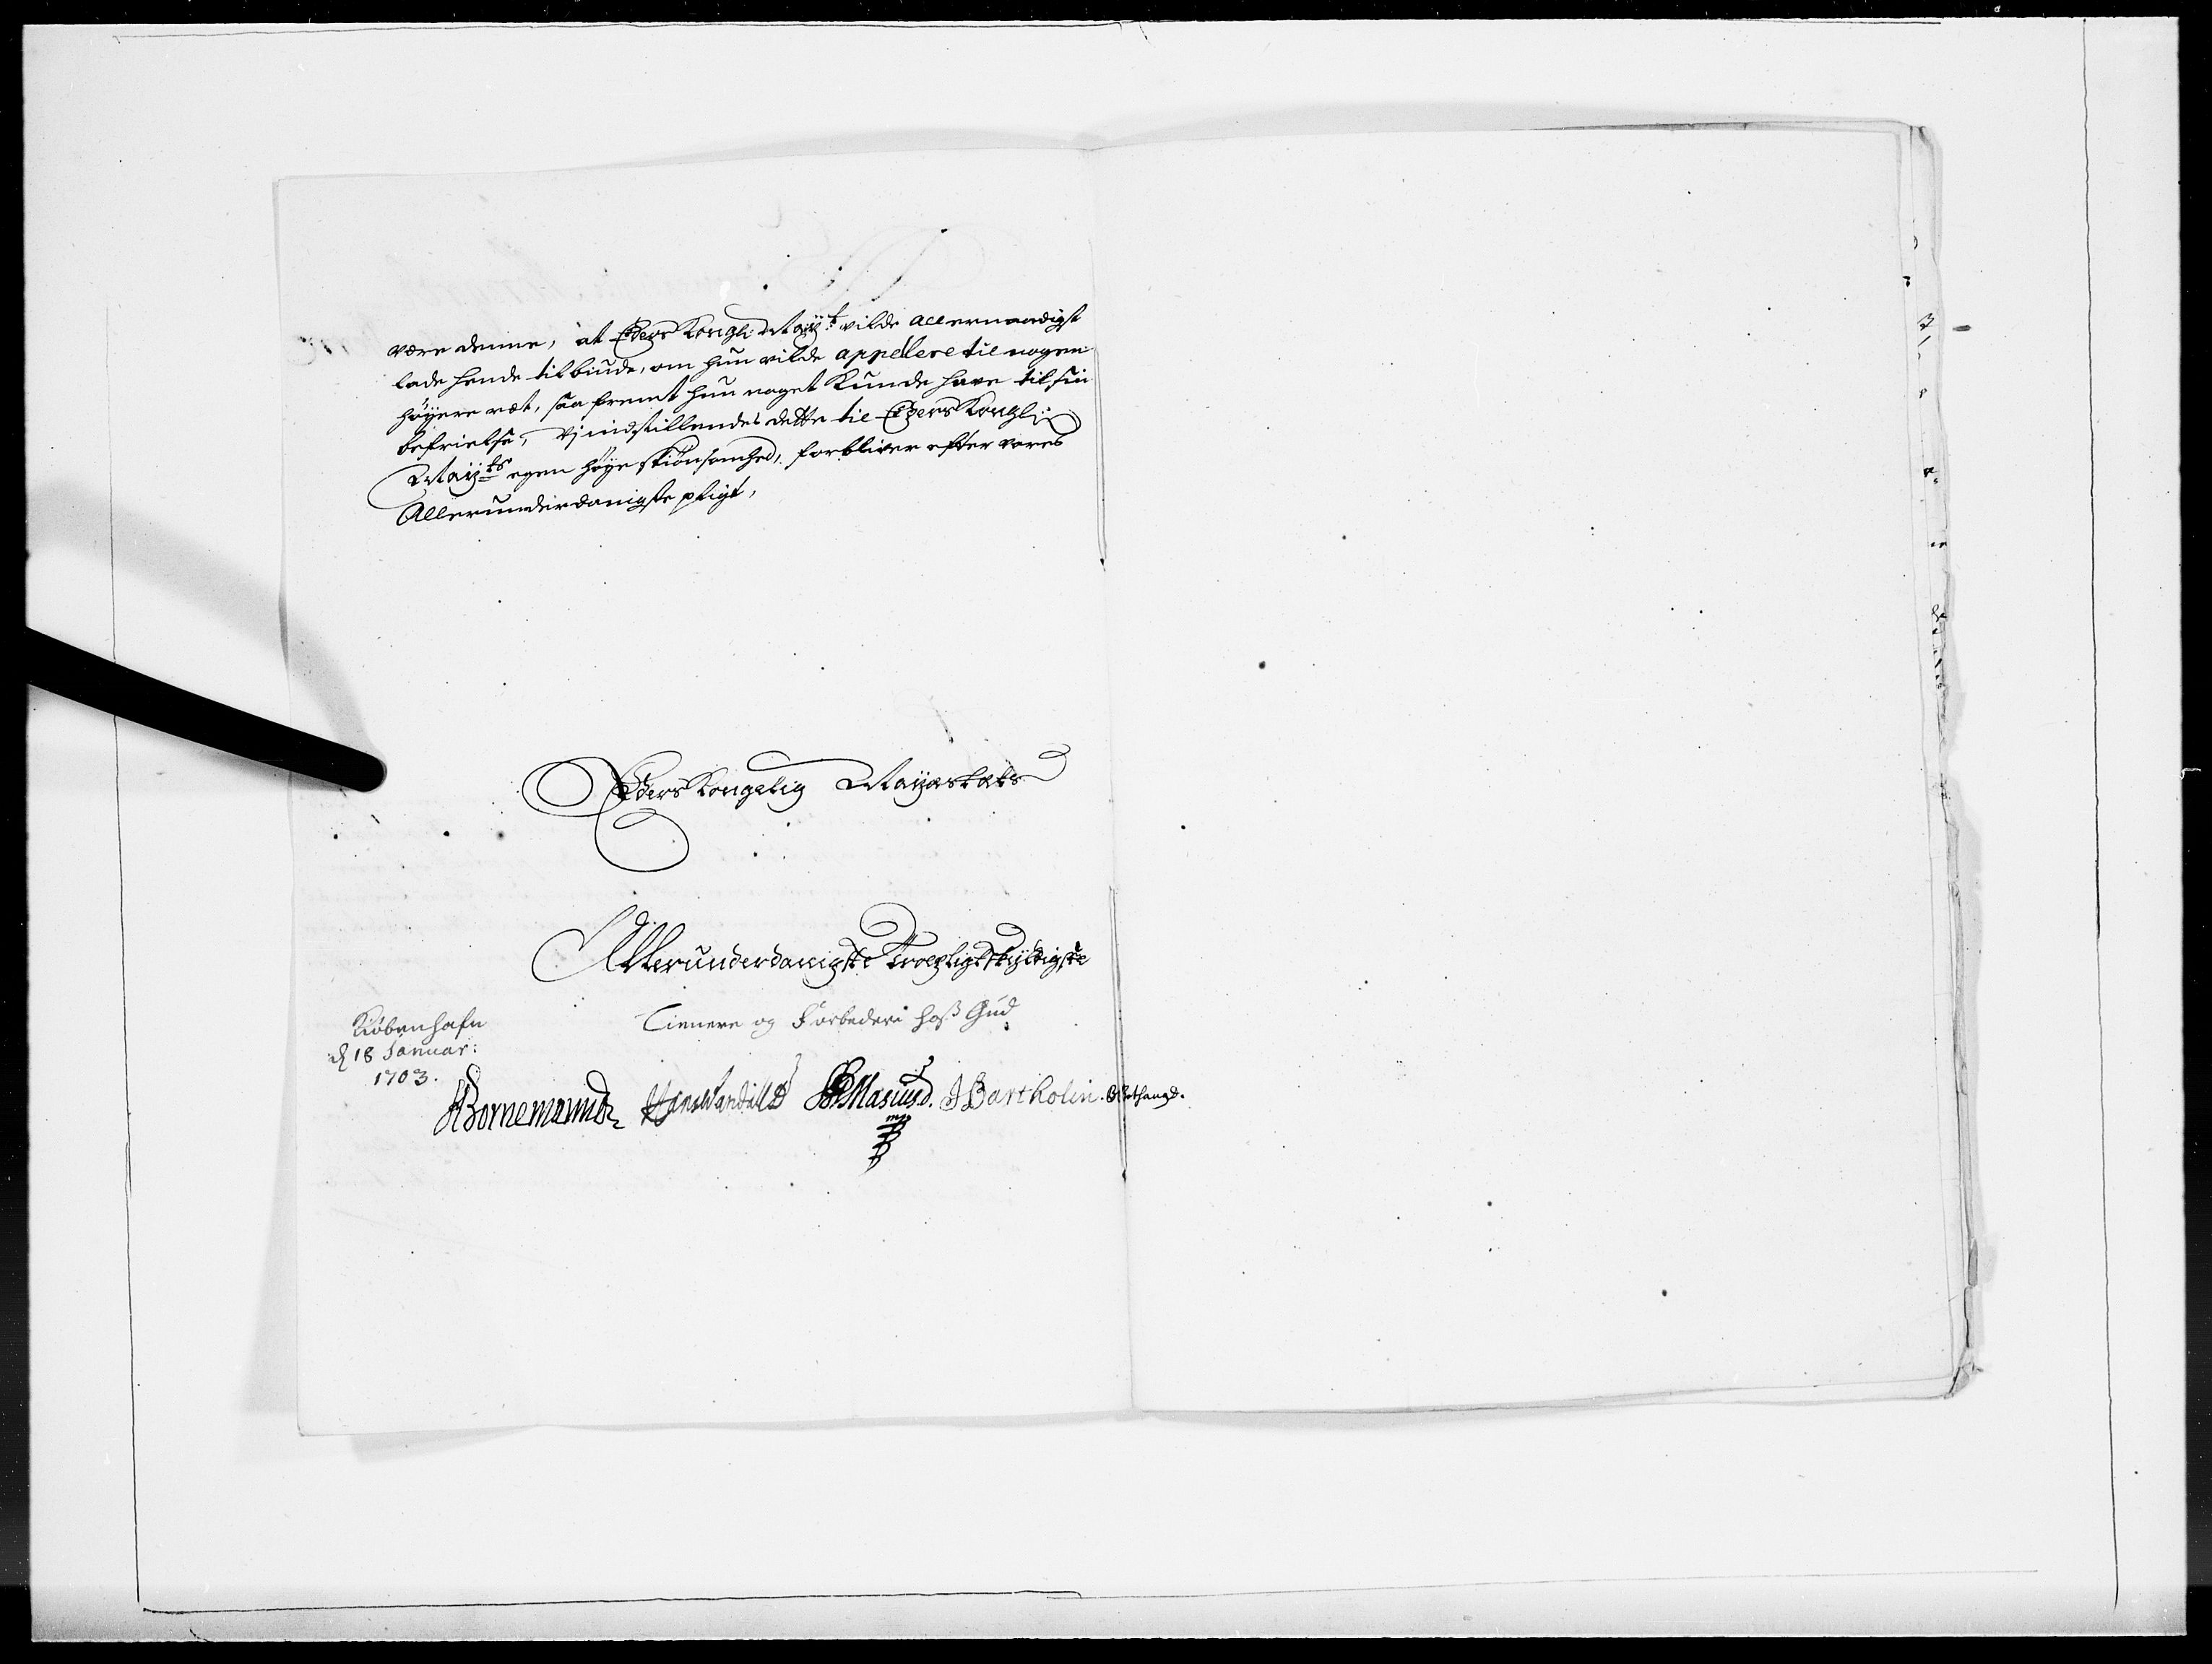 være denne, at Eders Kongl: Maÿ:t vilde allernaadigst
lade hende tilbiude, om hun vilde appellere til nogen
höyere ræt, saa fremt hun noget kunde have til sin
befrielse, Vj indstillendes dette til Eders Kongl:
Maÿ:ts egen höye skiönsomhed, forbliver efter vores
Allerunderdanigste pligt,
Eders Kongelig Mayestæts
Allerunderdanigste Troepligtskyldigste
Tienere og Forbedere hoss Gud
Kiöbenhafn
d 18 Januar:
1703.
HBornemann HansWandall D HMasiusd. JBartholin.